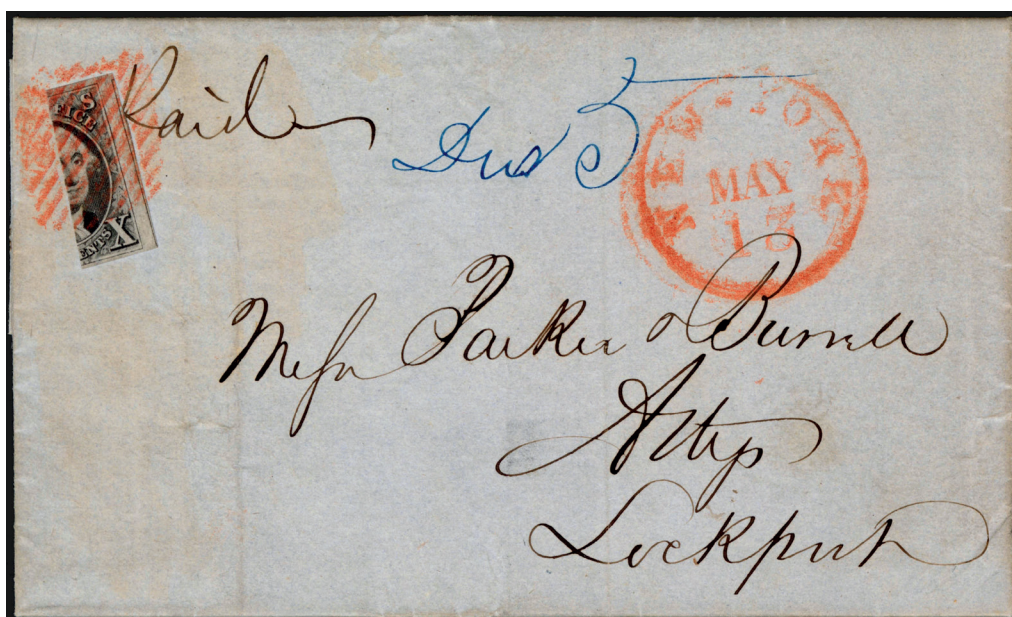 Paid
Due 5
NEW-YORK
MAY
13
S
FICE
X
CENTS
Messrs Parker & Burrell
Attys
Lockport